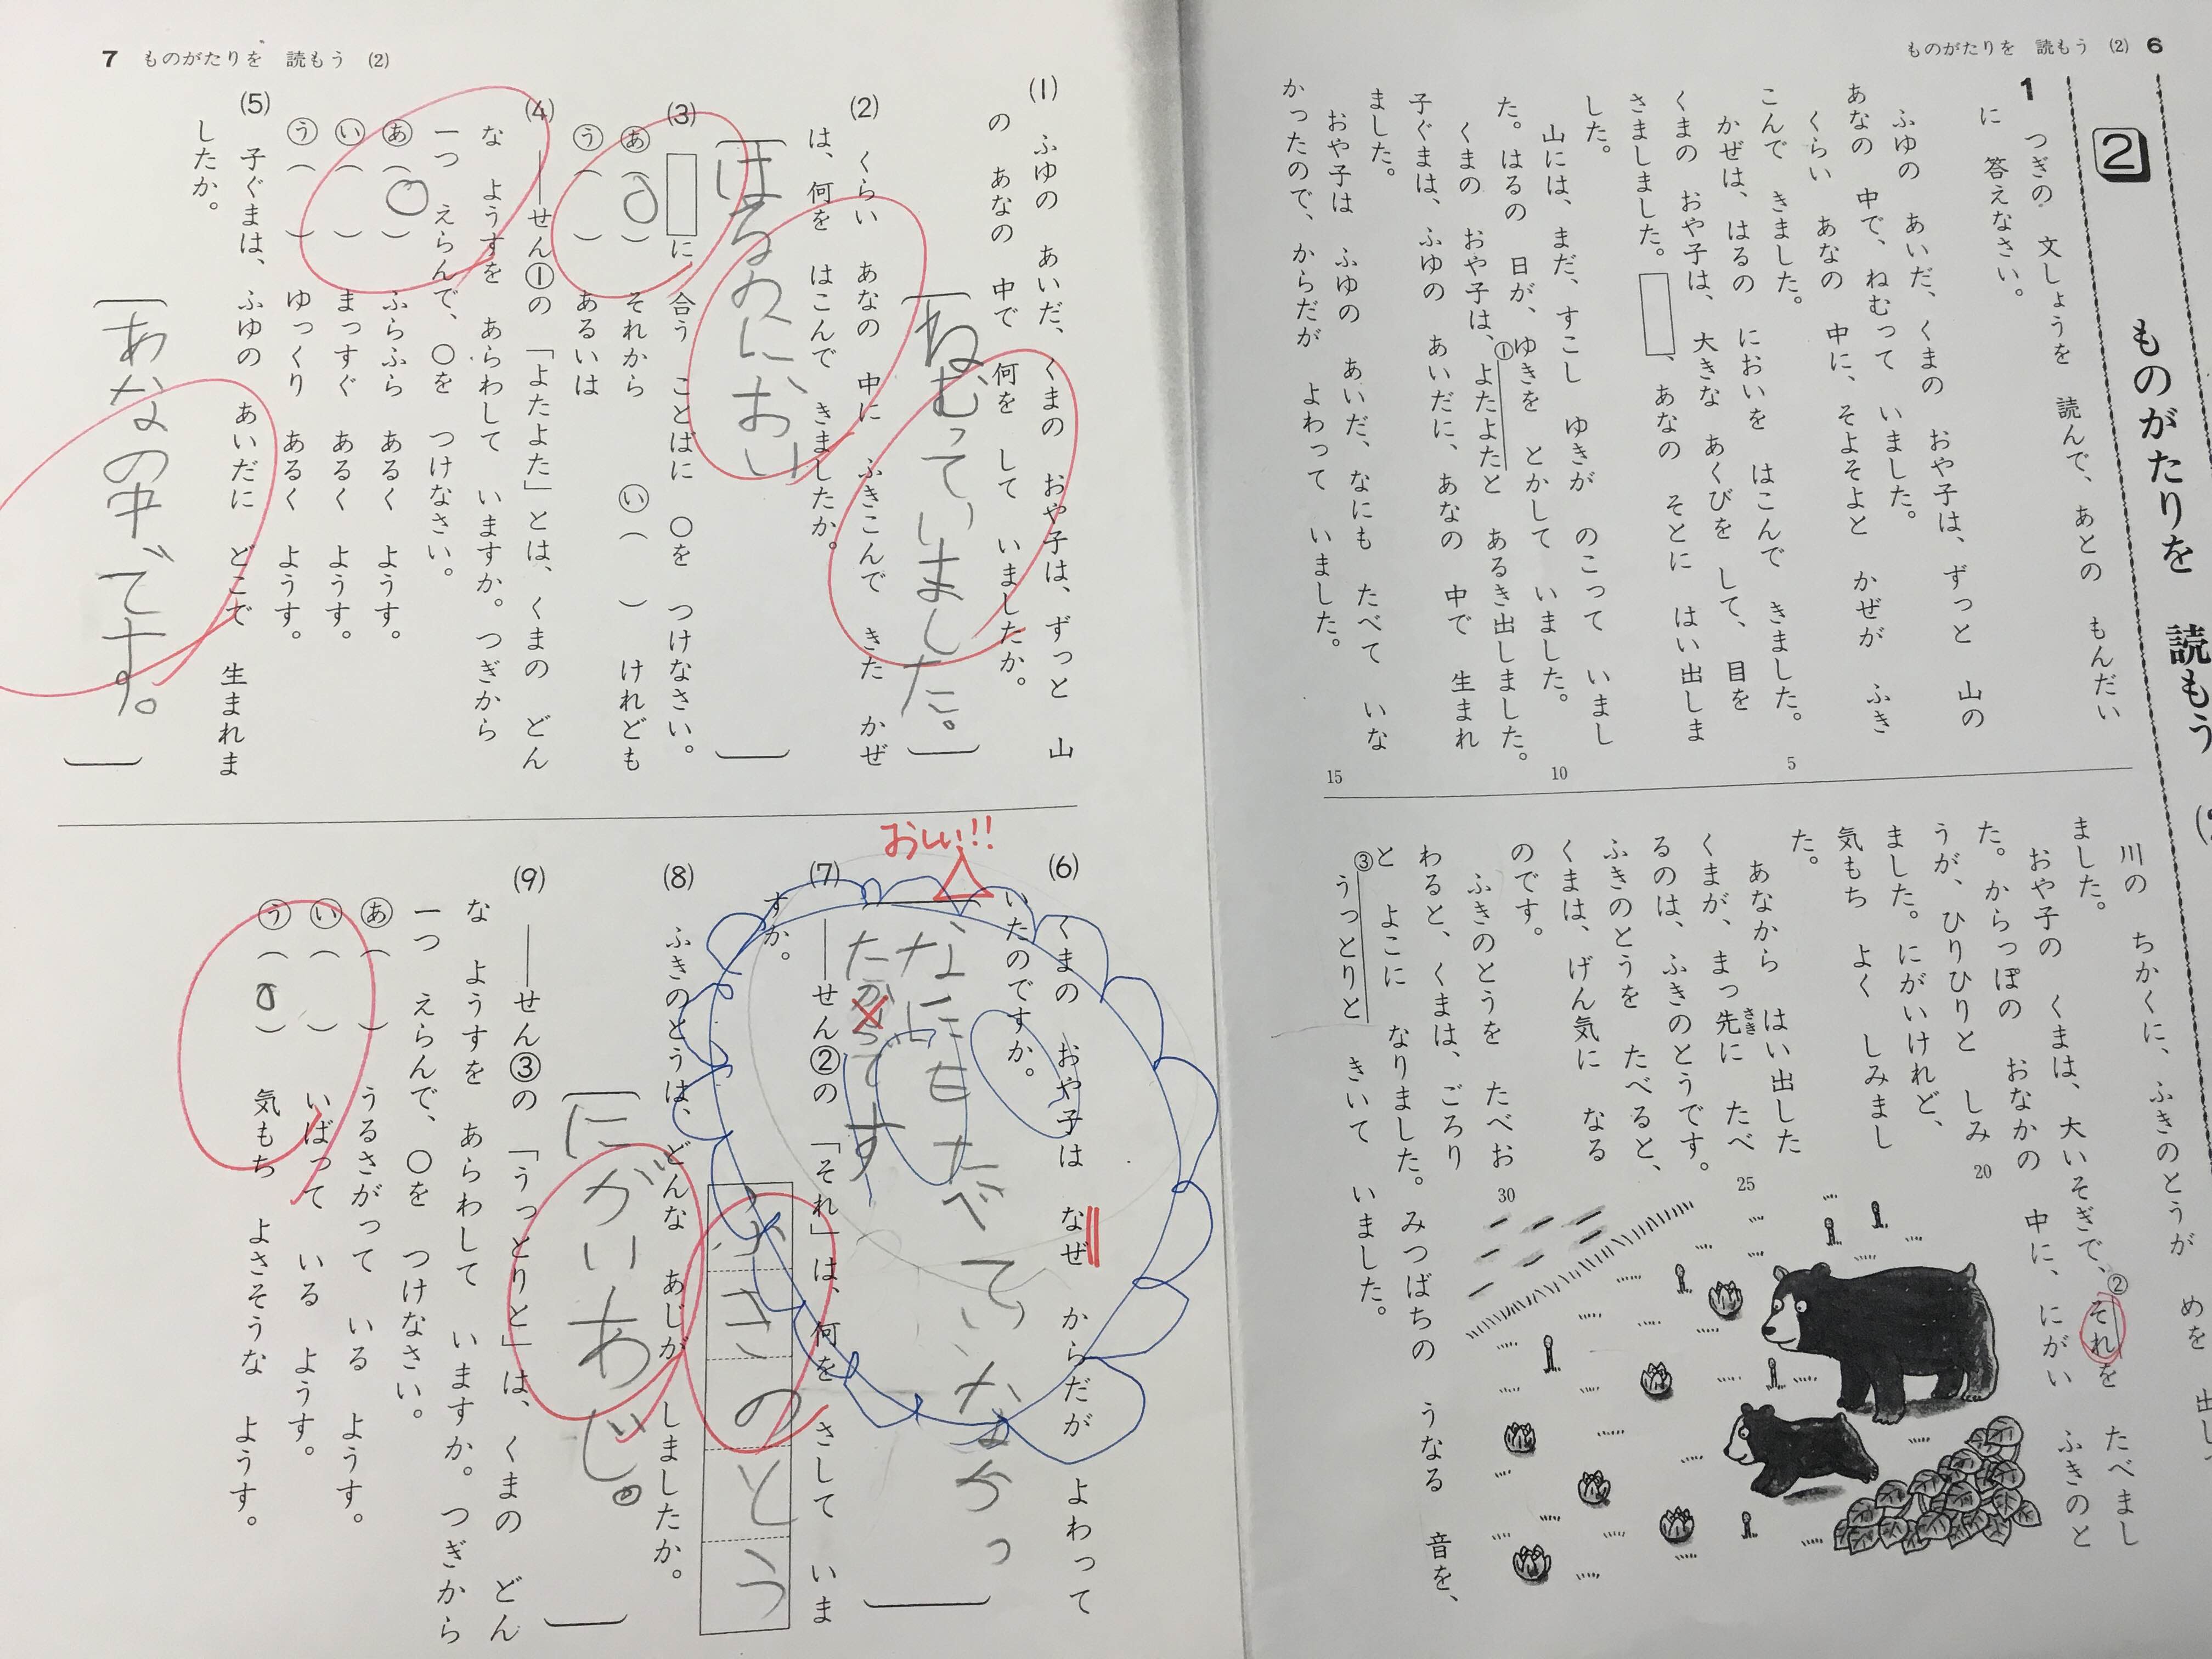 ものがたりを 読もう (2) 6
2 ものがたりを 読もう
1 つぎの 文しょうを 読んで、あとの もんだい
に 答えなさい。
ふゆの あいだ、くまの おや子は、ずっと 山の
あなの 中で、ねむって いました。
くらい あなの 中に、そよそよと かぜが ふき
こんで きました。
かぜは、はるの においを はこんで きました。
5
くまの おや子は、大きな あくびを して、目を
さましました。 、あなの そとに はい出しま
した。
山には、まだ、すこし ゆきが のこって いまし
た。はるの 日が、ゆきを とかして いました。
10
くまの おや子は、①よたよたと あるき出しました。
子ぐまは、ふゆの あいだに、あなの 中で 生まれ
ました。
おや子は ふゆの あいだ、なにも たべて いな
かったので、からだが よわって いました。
15
川の ちかくに、ふきのとうが めを 出し
ました。
おや子の くまは、大いそぎで、②それを たべまし
た。からっぽの おなかの 中に、にがい ふきのと
うが、ひりひりと しみ
20
ました。にがいけれど、
気もち よく しみまし
た。
あなから はい出した
くまが、まっ先に たべ
さき
25
るのは、ふきのとうです。
ふきのとうを たべると、
くまは、げん気に なる
のです。
ふきのとうを たべお
30
わると、くまは、ごろり
と よこに なりました。みつばちの うなる 音を、
③うっとりと きいて いました。
7 ものがたりを 読もう (2)
(1) ふゆの あいだ、くまの おや子は、ずっと 山
の あなの 中で 何を して いましたか。
ねむっていました。
(2) くらい あなの 中に ふきこんで きた かぜ
は、何を はこんで きましたか。
はるのにおい
(3) に 合う ことばに ○を つけなさい。
あ( ○ ) それから い( ) けれども
う( ) あるいは
(4) ──せん①の 「よたよた」とは、くまの どん
な ようすを あらわして いますか。つぎから
一つ えらんで、○を つけなさい。
あ( ○ ) ふらふら あるく ようす。
い( ) まっすぐ あるく ようす。
う( ) ゆっくり あるく ようす。
(5) 子ぐまは、ふゆの あいだに どこで 生まれま
したか。
あなの中です。
(6) くまの おや子は なぜ からだが よわって
いたのですか。
おしい!!
なにもたべていなかっ
たからです
(7) ──せん②の 「それ」は、何を さして いま
すか。
ふきのとう
(8) ふきのとうは、どんな あじが しましたか。
にがいあじ。
(9) ──せん③の 「うっとりと」は、くまの どん
な ようすを あらわして いますか。つぎから
一つ えらんで、○を つけなさい。
あ( ) うるさがって いる ようす。
い( ) いばって いる ようす。
う( ○ ) 気もち よさそうな ようす。